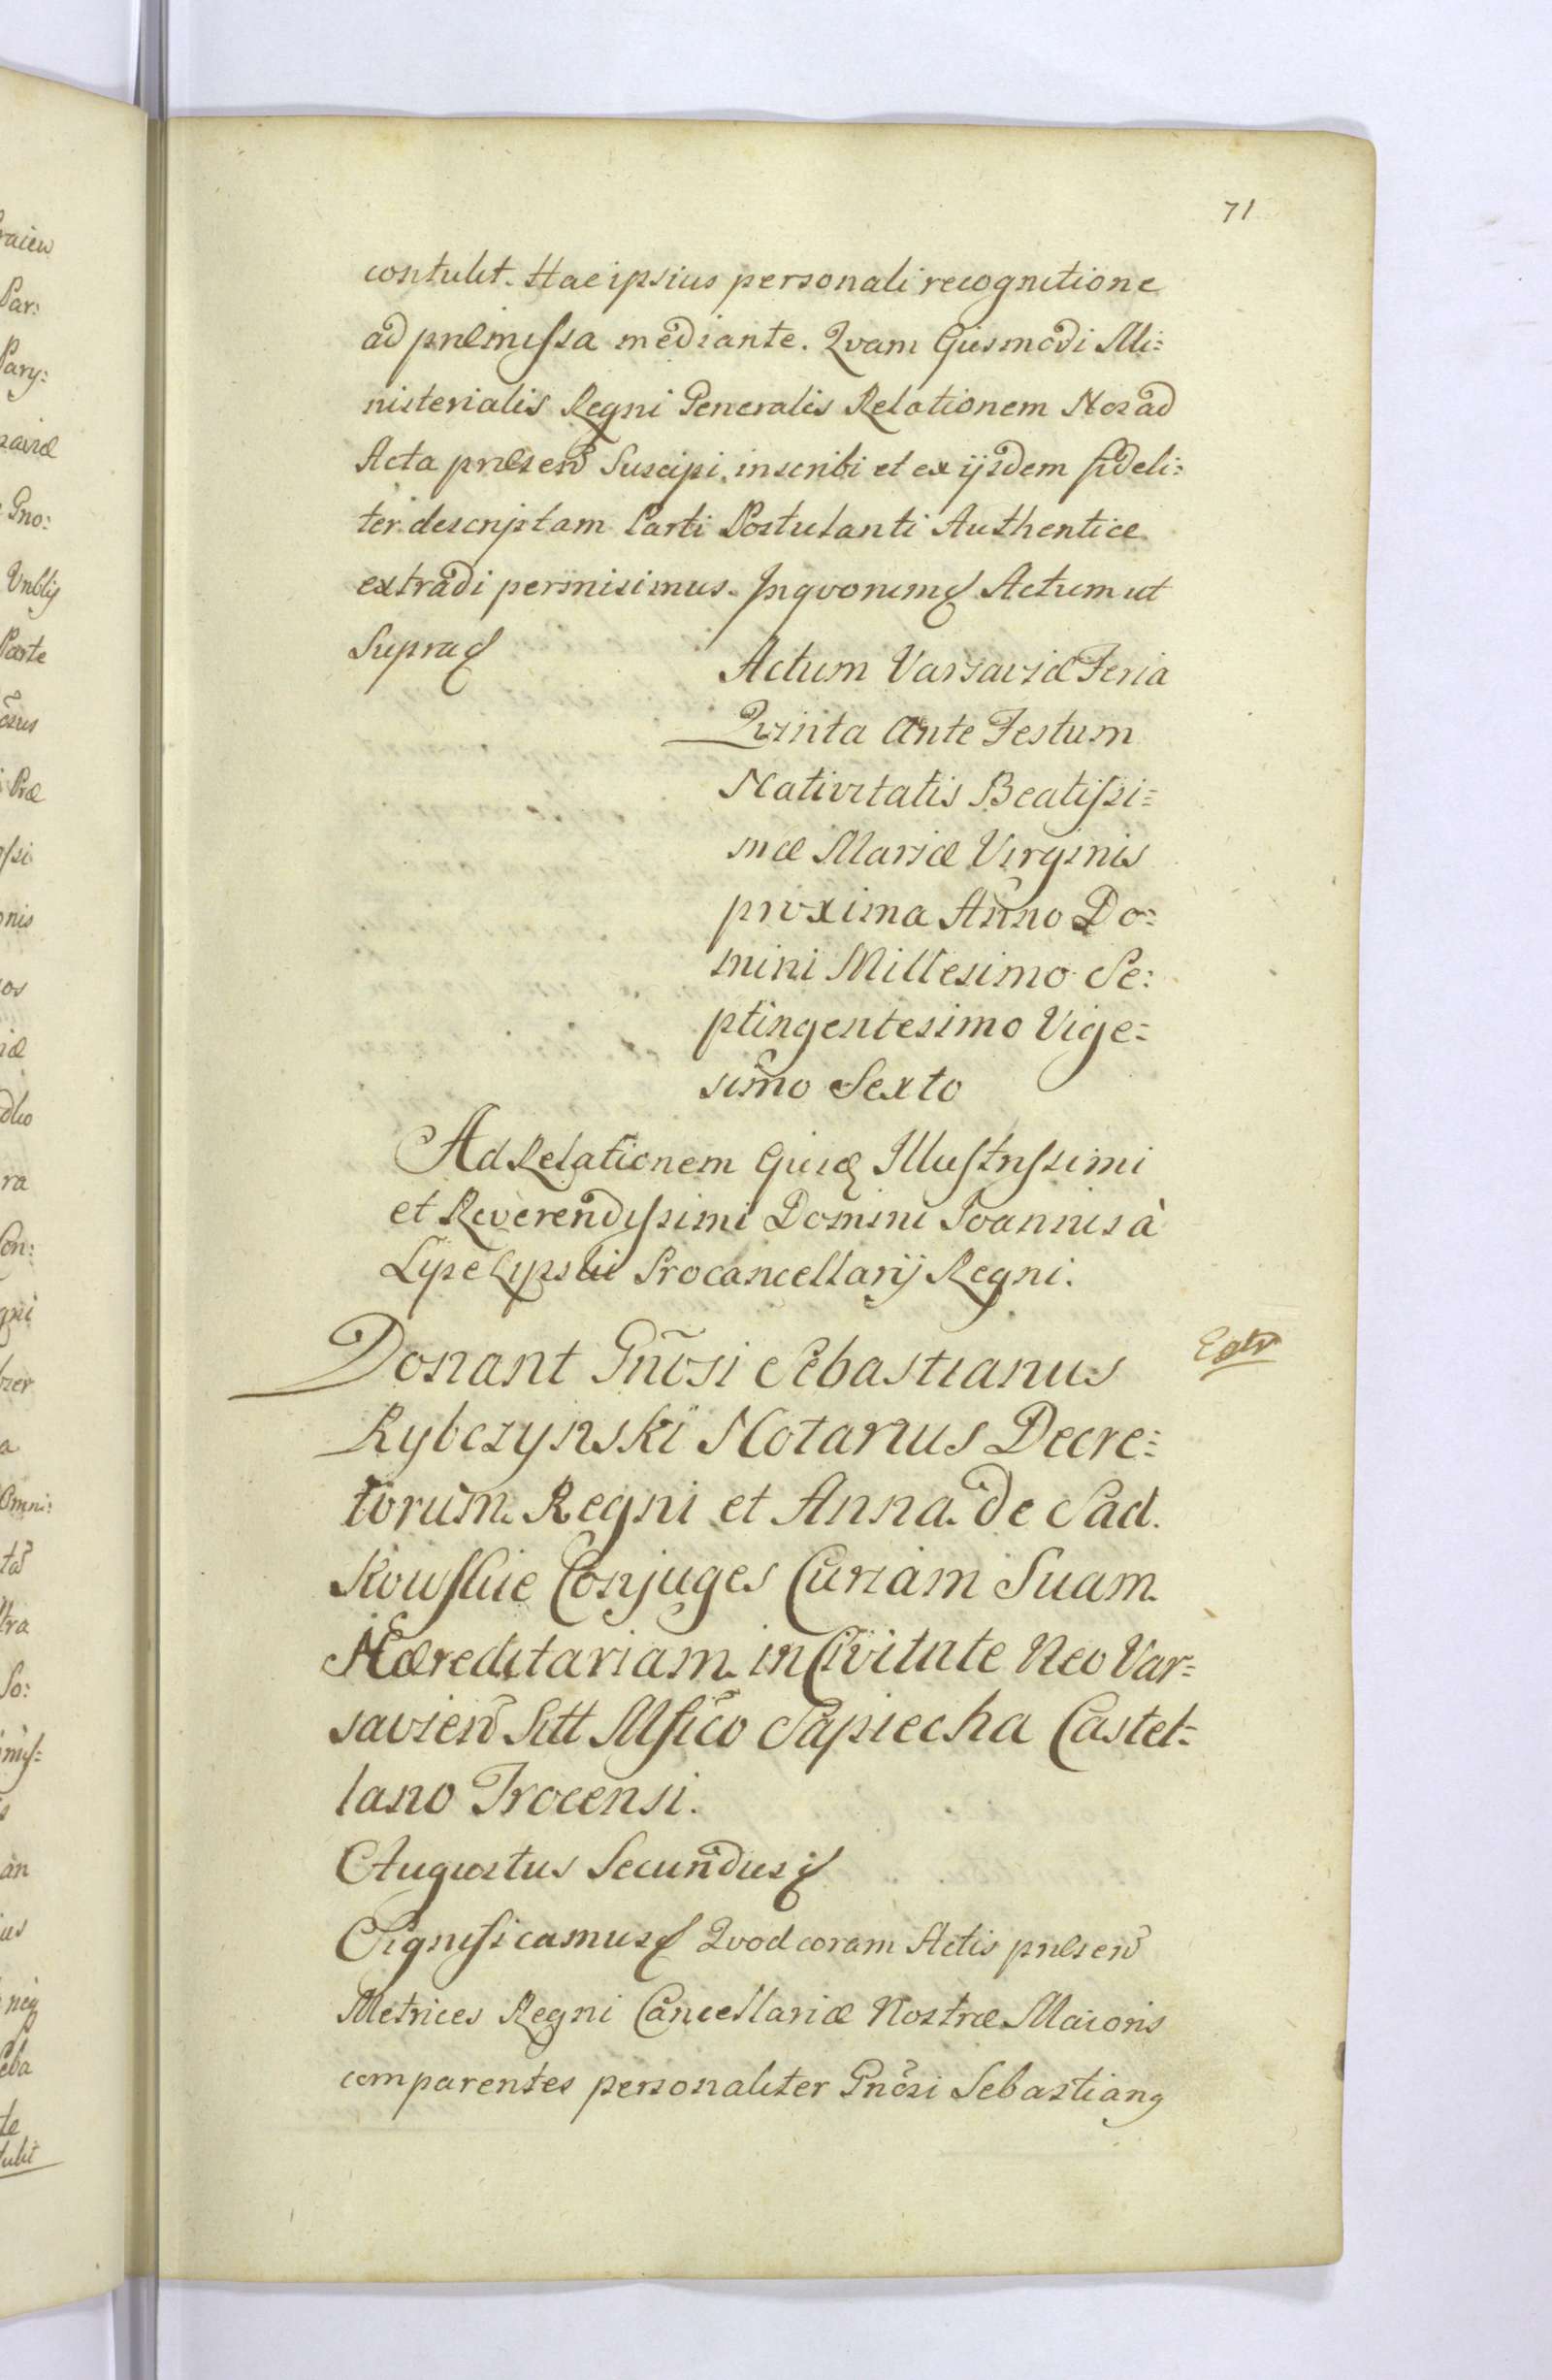 71
contulit. Hac ipsius personali recognitione
ad præmissa mediante. Qvam Ejusmodi Mi:
nisterialis Regni Generalis Relationem Nos ad
Acta præsen̄ Suscipi, inscribi et ex ijsdem fideli:
ter descriptam Parti Postulanti Authentice
extradi permisimus. In qvorum Actum ut
Supra
Actum Varsaviæ Feria
Qvinta Ante Festum
Nativitatis Beatissi:
mæ Mariæ Virginis
proxima Anno Do:
mini Millesimo Se:
ptingentesimo Vige:
simo Sexto
Ad Relationem Ejusd Illustrissimi
et Reverendissimi Domini Joannis à
Lype Lypski Procancellarij Regni.
Donant Gñosi Sebastianus
Rybczynski Notarius Decre:
torum Regni et Anna de Sad
kowskie Conjuges Curiam Suam
Hæreditariam in Civitate Neo Var:
savien̄ Sitt Mfico Sapiecha Castel:
lano Trocensi.
Augustus Secundus
Significamus Qvod coram Actis præsen̄
Metrices Regni Cancellariæ Nostræ Maioris
comparentes personaliter Gnõsi Sebastiang